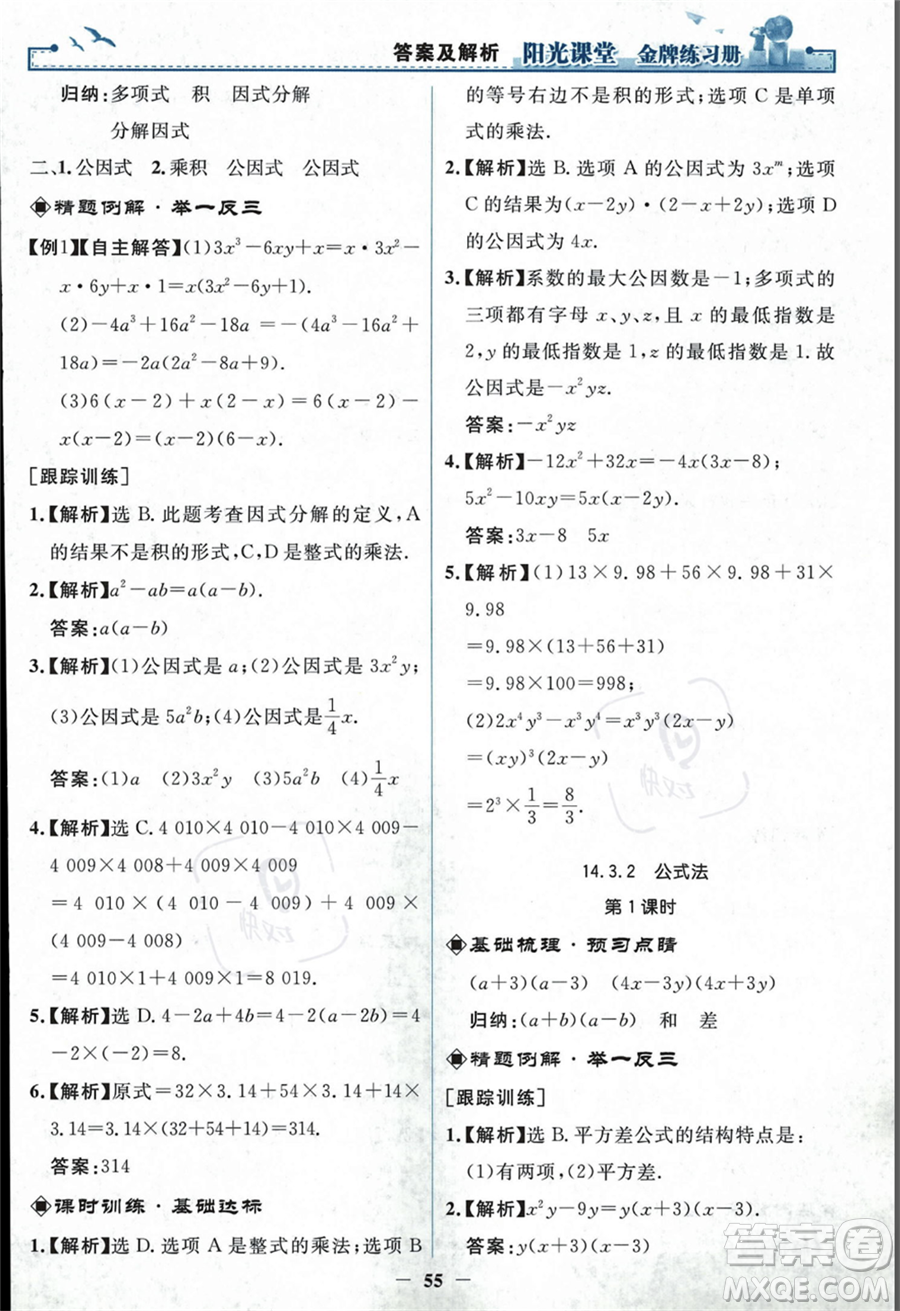 答案及解析 阳光课堂 金牌练习册
归纳:多项式 积 因式分解
分解因式
二、1.公因式 2.乘积 公因式 公因式
精题例解·举一反三
【例1】【自主解答】(1)3x³-6xy+x=x·3x²-
x·6y+x·1=x(3x²-6y+1).
(2)-4a³+16a²-18a=-(4a³-16a²+
18a)=-2a(2a²-8a+9).
(3)6(x-2)+x(2-x)=6(x-2)-
x(x-2)=(x-2)(6-x).
[跟踪训练]
1.【解析】选 B. 此题考查因式分解的定义,A
的结果不是积的形式,C,D是整式的乘法.
2.【解析】a²-ab=a(a-b).
答案:a(a-b)
3.【解析】(1)公因式是 a;(2)公因式是 3x²y;
(3)公因式是 5a²b;(4)公因式是 1/4 x.
答案:(1)a (2)3x²y (3)5a²b (4) 1/4 x
4.【解析】选 C. 4 010×4 010-4 010×
4 009×4 008+4 009×4 009
=4 010×(4 010-4 009)+4 009×
(4 009-4 008)
=4 010×1+4 009×1=8 019.
5.【解析】选 D. 4-2a+4b=4-2(a-2b)=4
-2×(-2)=8.
6.【解析】原式=32×3.14+54×3.14+14×
3.14=3.14×(32+54+14)=314.
答案:314
课时训练·基础达标
1.【解析】选 D. 选项 A 是整式的乘法;选项 B
的等号右边不是积的形式;选项 C 是单项
式的乘法.
2.【解析】选 B. 选项 A 的公因式为 3xᵐ;选项
C 的结果为(x-2)·(2-x-2);选项 D
的公因式为 4x.
3.【解析】系数的最大公因数是-1;多项式的
三项都有字母 x、y、z,且 x 的最低指数是
2,y 的最低指数是 1,z 的最低指数是 1. 故
公因式是-x²yz.
答案:-x²yz
4.【解析】-12x²+32x=-4x(3x-8);
5x²-10xy=5x(x-2y).
答案:3x-8 5x
5.【解析】(1)13×9.98+56×9.98+31×
9.98
=9.98×(13+56+31)
=9.98×100=998;
(2)2x⁴y³-x³y⁴=x³y³(2x-y)
=(xy)³(2x-y)
=2³×1/3=8/3.
14.3.2 公式法
第1课时
基础梳理·预习点睛
(a+3)(a-3) (4x+y)(4x-y)
归纳:(a+b)(a-b) 和 差
精题例解·举一反三
[跟踪训练]
1.【解析】选 B. 平方差公式的结构特点是:
(1)有两项,(2)平方差.
2.【解析】x²y-9y=y(x²-9)=y(x+3)(x-3).
答案:y(x+3)(x-3)
55
快对
快对
答案圈
MXQE.COM